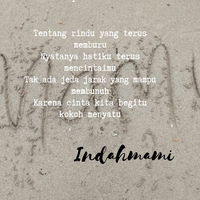 Tentang rindu yang terus
memburu
Nyatanya hatiku terus
mencintaimu
Tak ada jeda jarak yang mampu
membunuh
Karena cinta kita begitu
kokoh menyatu
Indahmami